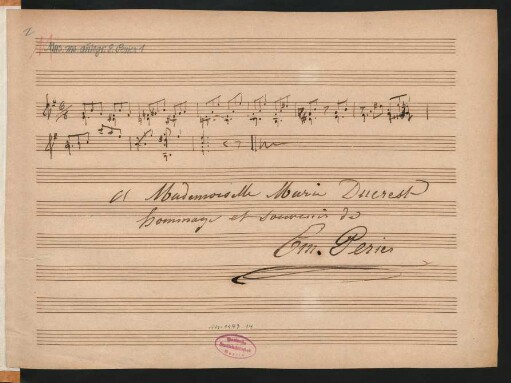 Mus. ms. autogr. E. Perier 1
a Mademoiselle Maria Ducrest
hommage et souvenir de
Em. Perier